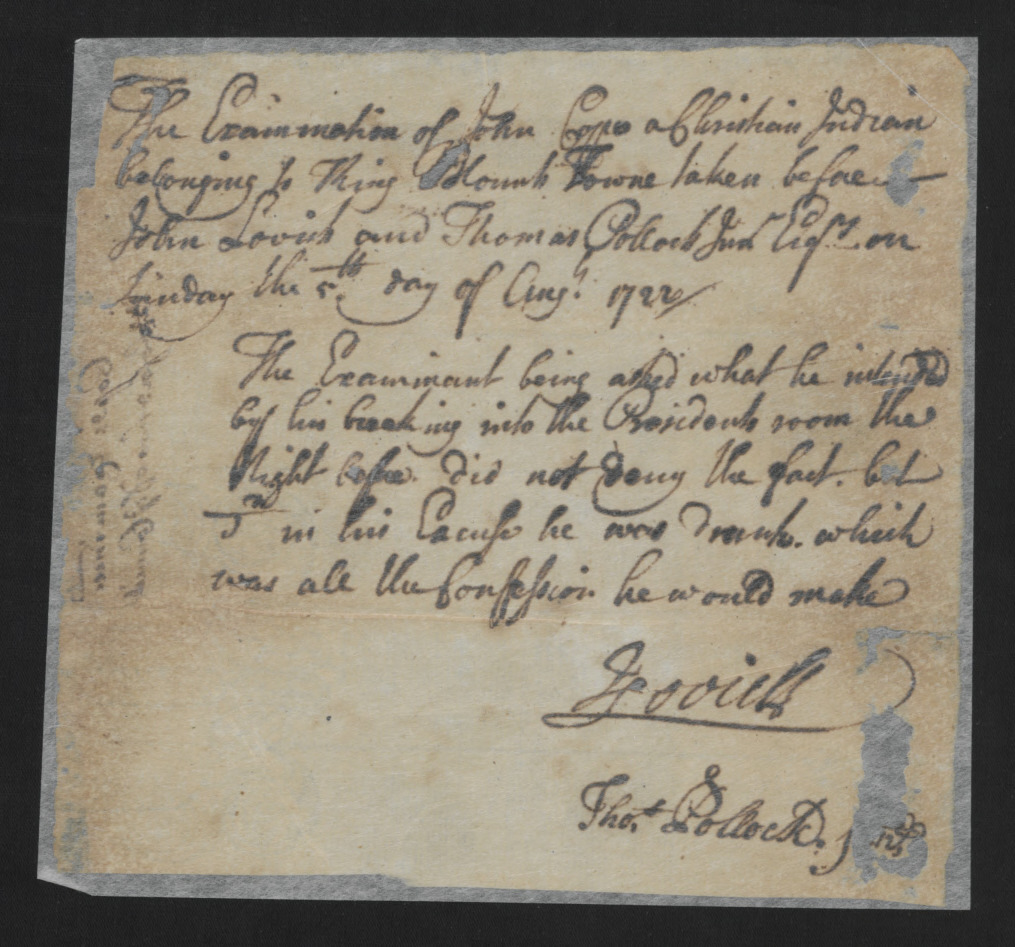 The Examination of John Cope a Christian Indian
belonging to King Blounts Towne taken before
John Lovick and Thomas Pollock Junr Esqrs on
Sunday the 5th day of Augt 1722
The Examinant being asked what he intended
by his breaking into the Presidents room the
Night before did not deny the fact but
in his Excuse he was drunk. which
was all the Confession he would make
J Lovick
Thos Pollock junr